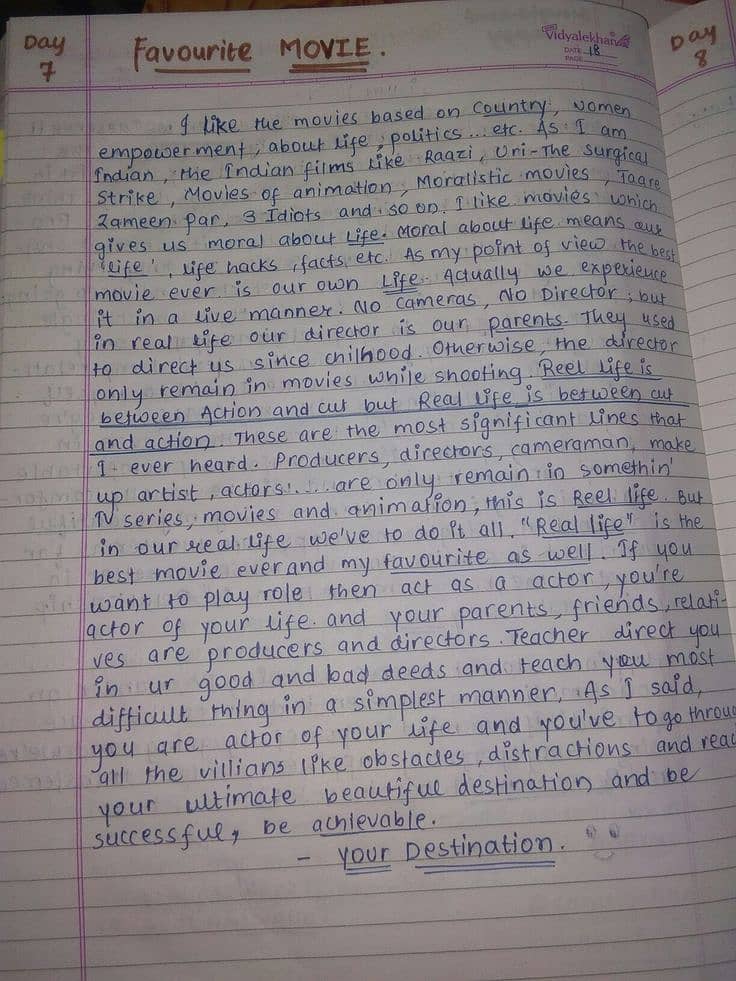 Day
7
Favourite MOVIE.
Vidyalekhan
DATE 18
PAGE
Day
8
I like the movies based on Country, women
empowerment, about life, politics... etc. As I am
Indian, the Indian films like Raazi, Uri-The Surgical
Strike, Movies of animation, Moralistic movies, Taare
Zameen Par, 3 Idiots and so on. I like movies which
gives us moral about Life. Moral about life means our
'Life', life hacks, facts etc. As my point of view the best
movie ever is our own Life. Actually we experience
it in a live manner. No Cameras, No Director, but
in real life our director is our parents. They used
to direct us since chilhood. Otherwise, the director
only remain in movies while shooting. Reel life is
between Action and cut but Real Life is between cut
and action. These are the most significant lines that
I ever heard. Producers, directors, cameraman, make
up artist, actors.... are only remain in somethin'
TV series, movies and animation, this is Reel life. But
in our real life we've to do it all. "Real life" is the
best movie ever and my favourite as well. If you
want to play role then act as a actor, you're
actor of your life and your parents, friends, relati-
ves are producers and directors. Teacher direct you
in ur good and bad deeds and teach you most
difficult thing in a simplest manner. As I said,
you are actor of your life and you've to go throu
all the villians like obstacles, distractions and reac
your ultimate beautiful destination and be
successful, be achievable.
- Your Destination.